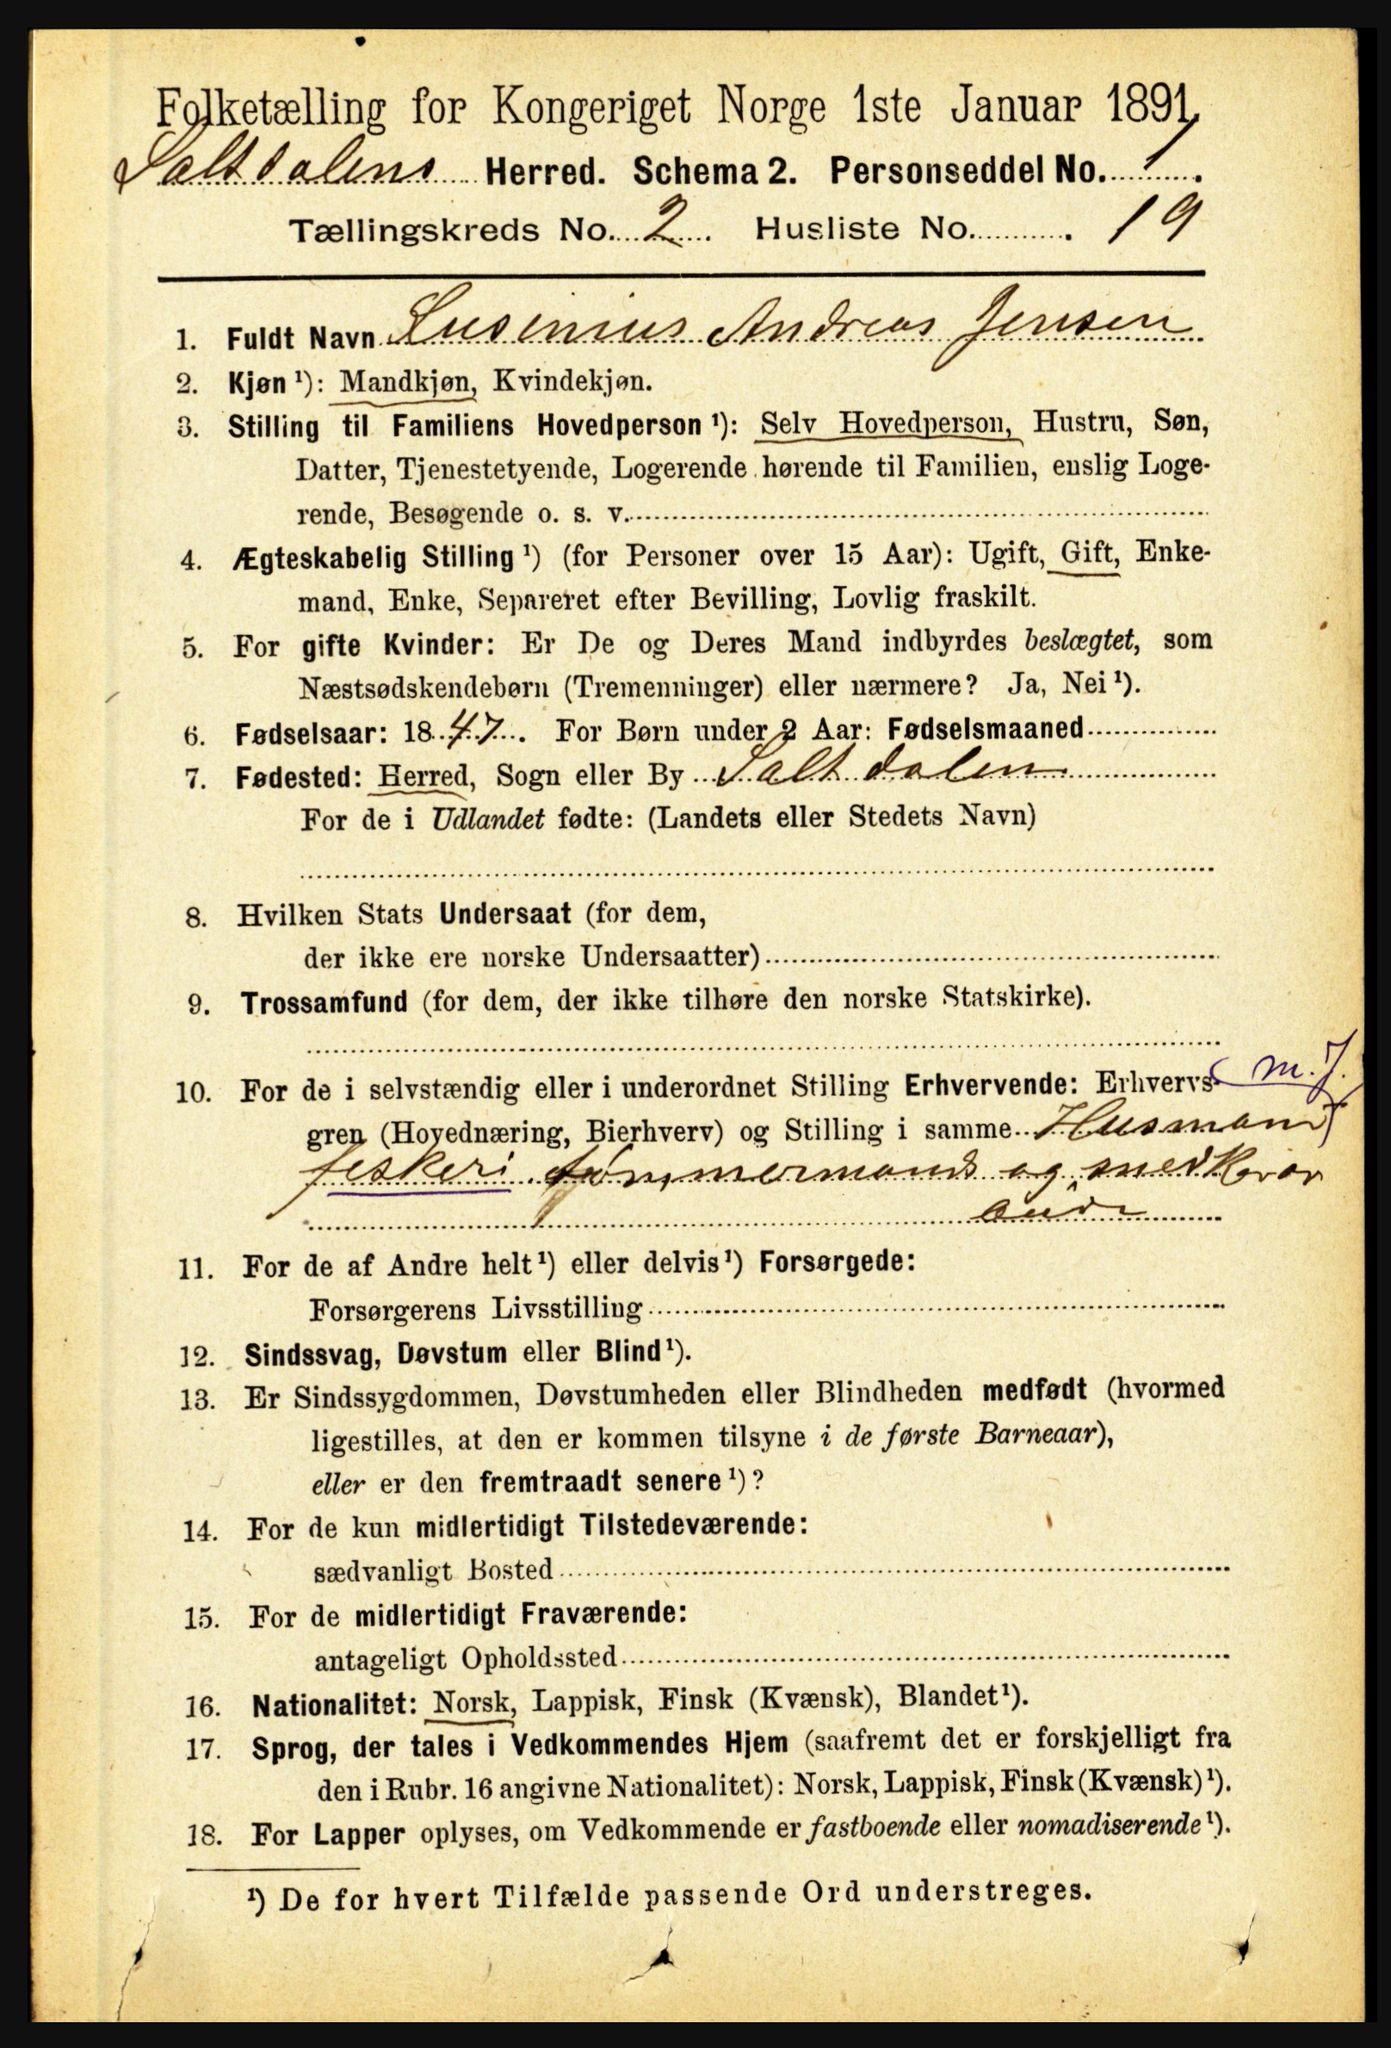 Folketælling for Kongeriget Norge 1ste Januar 1891.
Saltdalens Herred. Schema 2. Personseddel No. 1.
Tællingskreds No. 2. Husliste No. 19
1. Fuldt Navn Lusinius Andreas Jensen
2. Kjøn ¹): Mandkjøn, Kvindekjøn.
3. Stilling til Familiens Hovedperson ¹): Selv Hovedperson, Hustru, Søn,
Datter, Tjenestetyende, Logerende hørende til Familien, enslig Loge-
rende, Besøgende o. s. v.
4. Ægteskabelig Stilling ¹) (for Personer over 15 Aar): Ugift, Gift, Enke-
mand, Enke, Separeret efter Bevilling, Lovlig fraskilt.
5. For gifte Kvinder: Er De og Deres Mand indbyrdes beslægtet, som
Næstsødskendebørn (Tremenninger) eller nærmere? Ja, Nei ¹).
6. Fødselsaar: 1847. For Børn under 2 Aar: Fødselsmaaned
7. Fødested: Herred, Sogn eller By Saltdalen
For de i Udlandet fødte: (Landets eller Stedets Navn)
8. Hvilken Stats Undersaat (for dem,
der ikke ere norske Undersaatter)
9. Trossamfund (for dem, der ikke tilhøre den norske Statskirke).
10. For de i selvstændig eller i underordnet Stilling Erhvervende: Erhvervs- m. J.
gren (Hovednæring, Bierhverv) og Stilling i samme Husmand
feskeri tømmermands og snedkerar
beide
11. For de af Andre helt ¹) eller delvis ¹) Forsørgede:
Forsørgerens Livsstilling
12. Sindssvag, Døvstum eller Blind ¹).
13. Er Sindssygdommen, Døvstumheden eller Blindheden medfødt (hvormed
ligestilles, at den er kommen tilsyne i de første Barneaar),
eller er den fremtraadt senere ¹)?
14. For de kun midlertidigt Tilstedeværende:
sædvanligt Bosted
15. For de midlertidigt Fraværende:
antageligt Opholdssted
16. Nationalitet: Norsk, Lappisk, Finsk (Kvænsk), Blandet ¹).
17. Sprog, der tales i Vedkommendes Hjem (saafremt det er forskjelligt fra
den i Rubr. 16 angivne Nationalitet): Norsk, Lappisk, Finsk (Kvænsk) ¹).
18. For Lapper oplyses, om Vedkommende er fastboende eller nomadiserende ¹).
¹) De for hvert Tilfælde passende Ord understreges.